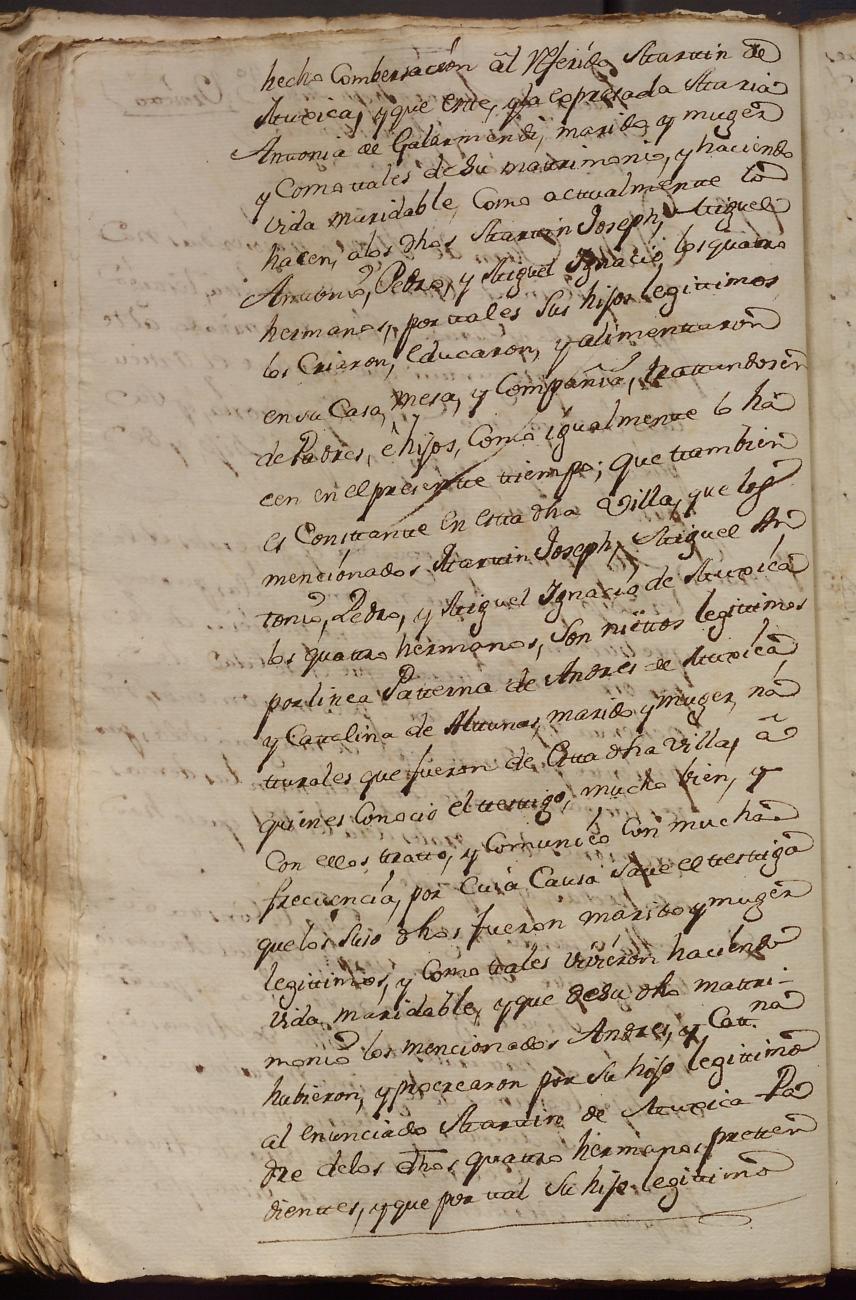 hecho Combersación al Referido Martin de
Muxica, y que este, y la expresada Maria
Antonia de Galarmendi, marido, y muger
y Como tales de su matrimonio, y haciendo
vida maridable, Como actualmente la
hacen, a los dhos Martin Joseph, Miguel
Antonio, Pedro, y Miguel Ignacio, los quatro
hermanos, por tales sus hijos legittimos
los Criaron, educaron, y alimentaron
en su Casa, mesa, y Compañia, trattandosen
de Padres, e hijos, Como igualmente lo ha
cen en el presente tiempo; que tambien
es Constante en esta dha Villa, que los
mencionados Martin Joseph, Miguel An
tonio, Pedro, y Miguel Ignacio de Muxica
los quatro hermanos, son niettos legittimos
por linea Patterna de Andres de Muxica,
y Catalina de Altuna, marido y muger, na
turales que fueron de Esta dha Villa, a
quienes Conocio el testigo, mucho bien, y
Con ellos tratto, y Comunicó Con mucha
frecuencia, por Cuia Causa save el testigo
que los suso dhos fueron marido y muger
legittimos, y Como tales vivieron haciendo
vida maridable, y que de su dho matri-
monio los mencionados Andres, y Catt.na
hubieron, y procrearon por su hijo legittimo
al enunciado Martin de Muxica Pa
dre de los dhos quatro hermanos pretten
dientes, y que por tal su hijo legittimo